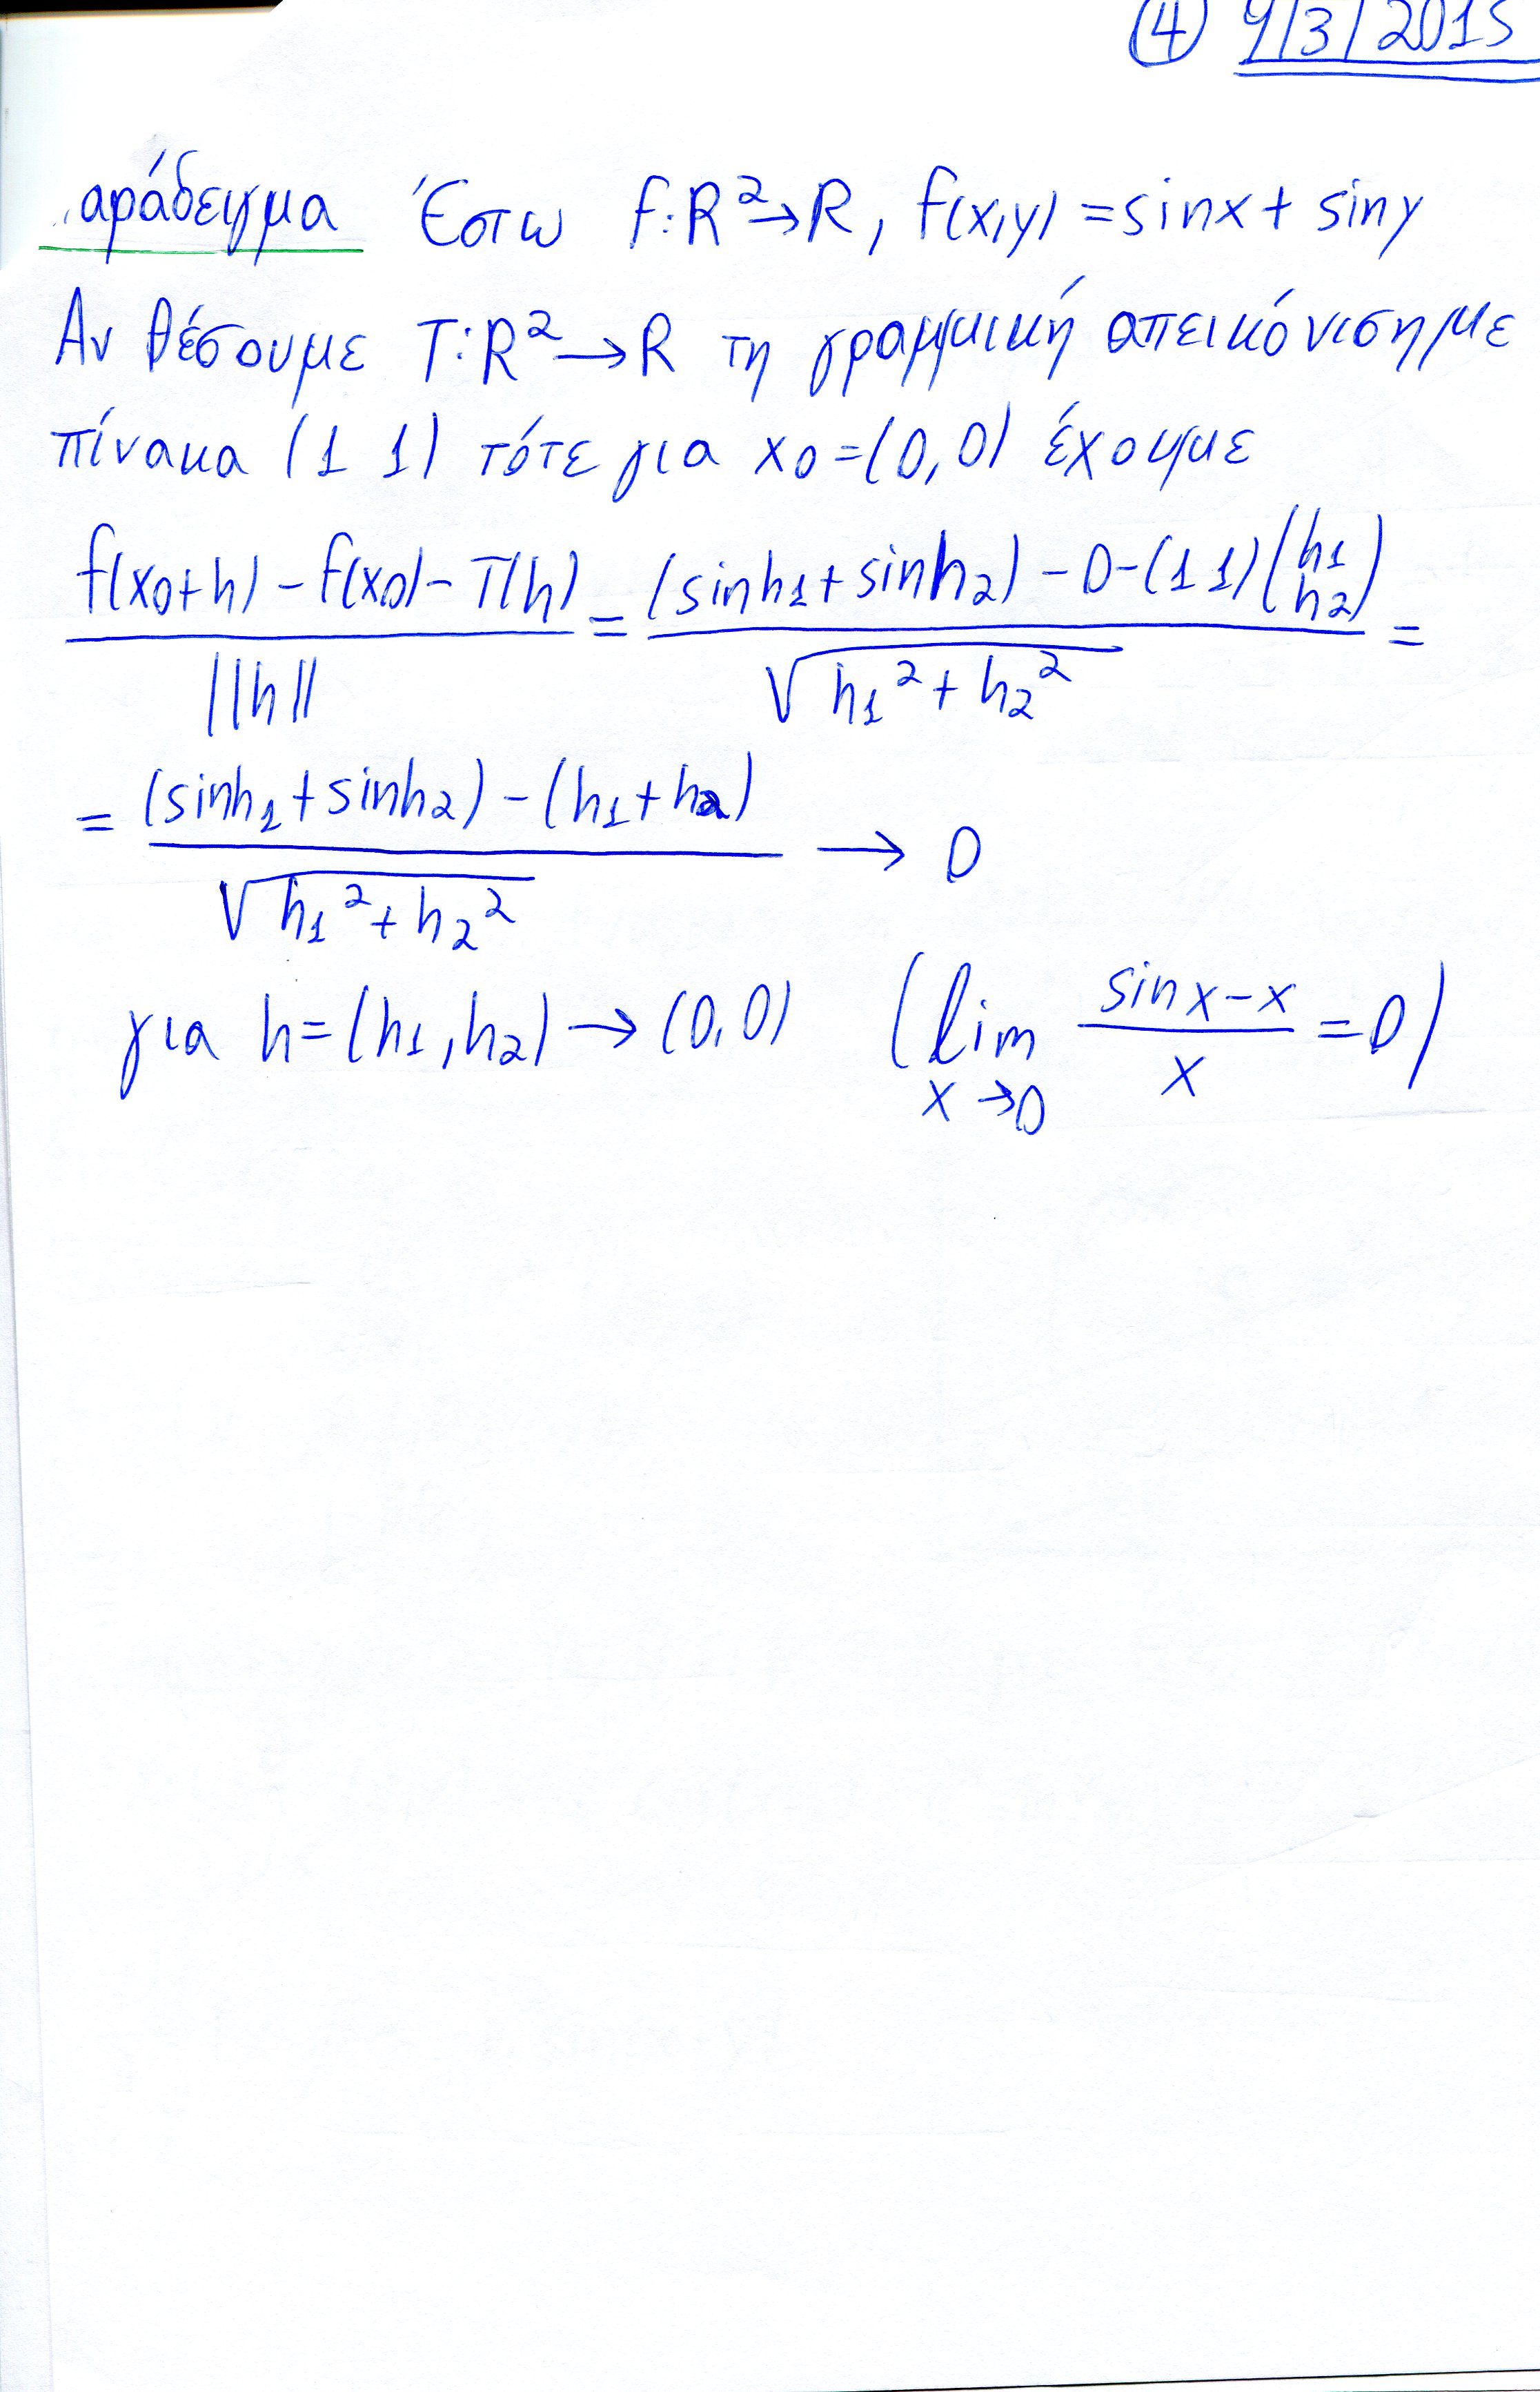 (4) 9/3/2015
αράδειγμα Έστω f:R²→R, f(x,y)=sinx+siny
Αν θέσουμε T:R²→R τη γραμμική απεικόνιση με
πίνακα (1 1) τότε για x₀=(0,0) έχουμε
(f(x₀+h)-f(x₀)-T(h))/||h|| = ((sinh₁+sinh₂)-0-(1 1)(h₁ h₂))/√(h₁²+h₂²) =
= ((sinh₁+sinh₂)-(h₁+h₂))/√(h₁²+h₂²) → 0
για h=(h₁,h₂)→(0,0) (lim x→0 (sinx-x)/x =0)